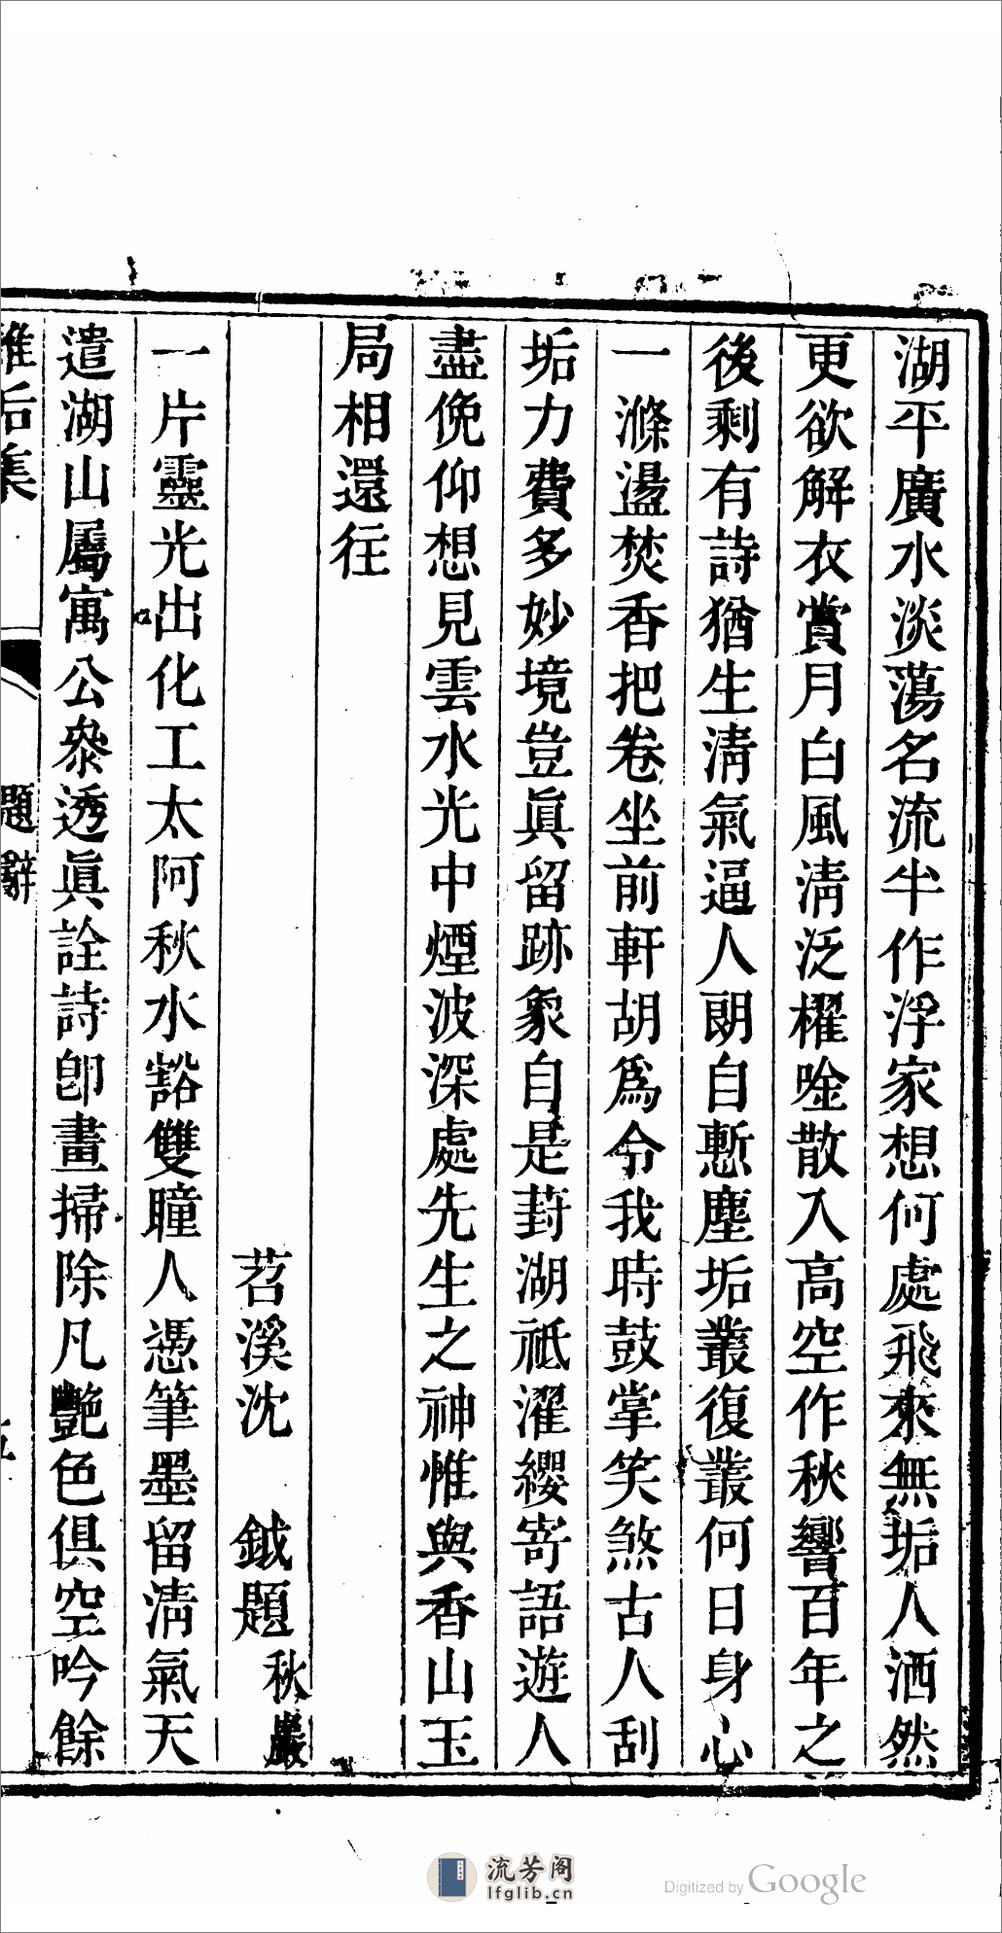 湖平廣水淡蕩名流半作浮家想何處飛來無垢人洒然
更欲解衣賞月白風清泛櫂唫散入高空作秋響百年之
後剩有詩猶生清氣逼人朗自慙塵垢叢復叢何日身心
一滌盪焚香把卷坐前軒胡爲令我時鼓掌笑煞古人刮
垢力費多妙境豈眞留跡象自是葑湖祇濯纓寄語遊人
盡俛仰想見雲水光中煙波深處先生之神惟與香山玉
局相還往
苕溪沈 鉞題秋巖
一片靈光出化工太阿秋水豁雙瞳人憑筆墨留清氣天
遣湖山屬寓公叅透眞詮詩卽畫掃除凡艶色俱空吟餘
題辭
流芳阁
lfglib.cn
Digitized by Google